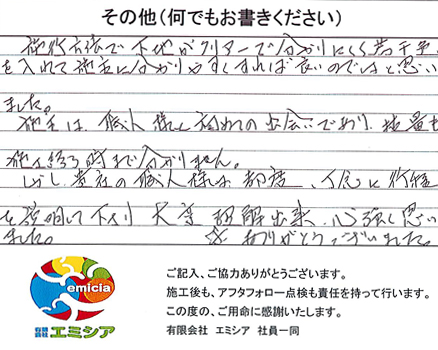 その他(何でもお書きください)
施行方法で下地がクリヤーで分かりにくく若干
を入れて施主に分かりやすくすれば良いのではと思い
ました。
施主は、職人様と初めての出会いであり、技量も
施工終る時まで分かりません。
しかし、貴社の職人様は都度、丁寧に行程
を説明して下さり 大変 理解出来、心強く思い
ました。
ありがとうございました。
emicia
有限会社 エミシア
ご記入、ご協力ありがとうございます。
施工後も、アフタフォロー点検も責任を持って行います。
この度の、ご用命に感謝いたします。
有限会社 エミシア 社員一同